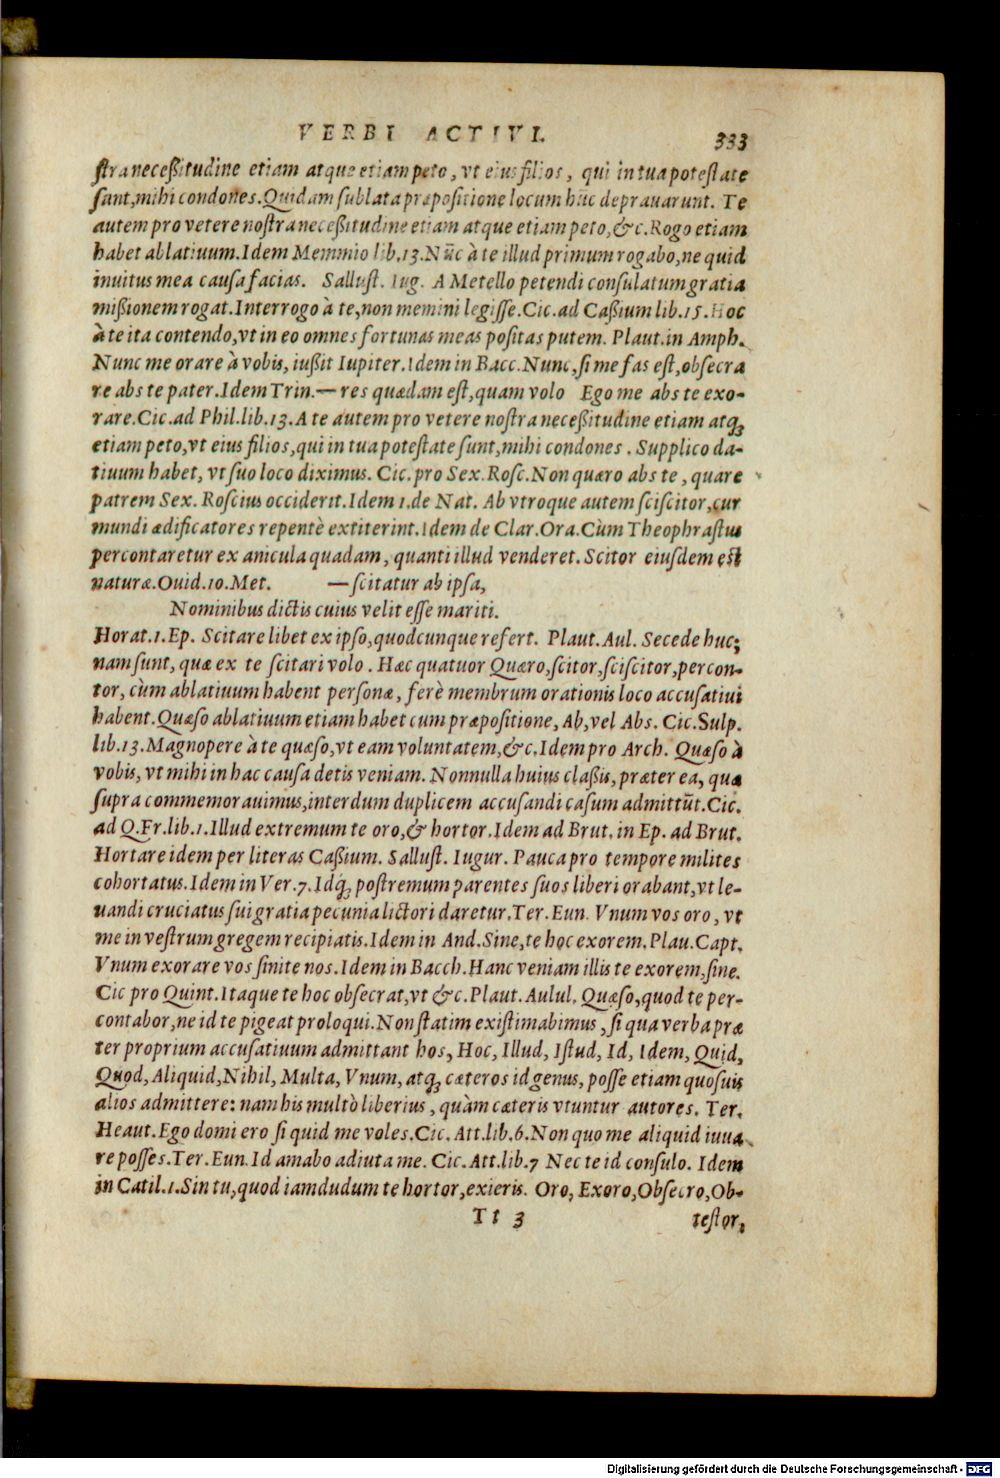 VERBI ACTIVI. 333
ſtra neceßitudine etiam atque etiam peto, vt eius filios, qui in tua poteſtate
ſunt, mihi condones. Quidam ſublata præpoſitione locum hũc deprauarunt. Te
autem pro vetere noſtra neceßitudine etiam atque etiam peto, &c. Rogo etiam
habet ablatiuum. Idem Memmio lib. 13. Nũc à te illud primum rogabo, ne quid
inuitus mea cauſa facias. Salluſt. Iug. A Metello petendi conſulatum gratia
mißionem rogat. Interrogo à te, non memini legiſſe. Cic. ad Caßium lib. 15. Hoc
à te ita contendo, vt in eo omnes fortunas meas poſitas putem. Plaut. in Amph.
Nunc me orare à vobis, iußit Iupiter. Idem in Bacc. Nunc, ſi me fas eſt, obſecra
re abs te pater. Idem Trin. — res quædam eſt, quam volo Ego me abs te exo-
rare. Cic. ad Phil. lib. 13. A te autem pro vetere noſtra neceßitudine etiam atq;
etiam peto, vt eius filios, qui in tua poteſtate ſunt, mihi condones. Supplico da-
tiuum habet, vt ſuo loco diximus. Cic. pro Sex. Roſc. Non quæro abs te, quare
patrem Sex. Roſcius occiderit. Idem 1. de Nat. Ab vtroque autem ſciſcitor, cur
mundi ædificatores repentè extiterint. Idem de Clar. Ora. Cùm Theophraſtus
percontaretur ex anicula quadam, quanti illud venderet. Scitor eiuſdem eſt
naturæ. Ouid. 10. Met. — ſcitatur ab ipſa,
Nominibus dictis cuius velit eſſe mariti.
Horat. 1. Ep. Scitare libet ex ipſo, quodcunque refert. Plaut. Aul. Secede huc;
nam ſunt, quæ ex te ſcitari volo. Hæc quatuor Quæro, ſcitor, ſciſcitor, percon-
tor, cùm ablatiuum habent perſonæ, ferè membrum orationis loco accuſatiui
habent. Quæſo ablatiuum etiam habet cum præpoſitione, Ab, vel Abs. Cic. Sulp.
lib. 13. Magnopere à te quæſo, vt eam voluntatem, &c. Idem pro Arch. Quæſo à
vobis, vt mihi in hac cauſa detis veniam. Nonnulla huius claßis, præter ea, quæ
ſupra commemorauimus, interdum duplicem accuſandi caſum admittũt. Cic.
ad Q. Fr. lib. 1. Illud extremum te oro, & hortor. Idem ad Brut. in Ep. ad Brut.
Hortare idem per literas Caßium. Salluſt. Iugur. Pauca pro tempore milites
cohortatus. Idem in Ver. 7. Idq; poſtremum parentes ſuos liberi orabant, vt le-
uandi cruciatus ſui gratia pecunia lictori daretur. Ter. Eun. Vnum vos oro, vt
me in veſtrum gregem recipiatis. Idem in And. Sine, te hoc exorem. Plau. Capt.
Vnum exorare vos ſinite nos. Idem in Bacch. Hanc veniam illis te exorem, ſine.
Cic pro Quint. Itaque te hoc obſecrat, vt &c. Plaut. Aulul. Quæſo, quod te per-
contabor, ne id te pigeat proloqui. Non ſtatim exiſtimabimus, ſi qua verba præ
ter proprium accuſatiuum admittant hos, Hoc, Illud, Iſtud, Id, Idem, Quid,
Quod, Aliquid, Nihil, Multa, Vnum, atq; cæteros id genus, poſſe etiam quoſuis
alios admittere: nam his multò liberius, quàm cæteris vtuntur autores. Ter.
Heaut. Ego domi ero ſi quid me voles. Cic. Att. lib. 6. Non quo me aliquid iuua
re poſſes. Ter. Eun. Id amabo adiuta me. Cic. Att. lib. 7 Nec te id conſulo. Idem
in Catil. 1. Sin tu, quod iamdudum te hortor, exieris. Oro, Exoro, Obſecro, Ob-
Tt 3 teſtor,
Digitalisierung gefördert durch die Deutsche Forschungsgemeinschaft - DFG